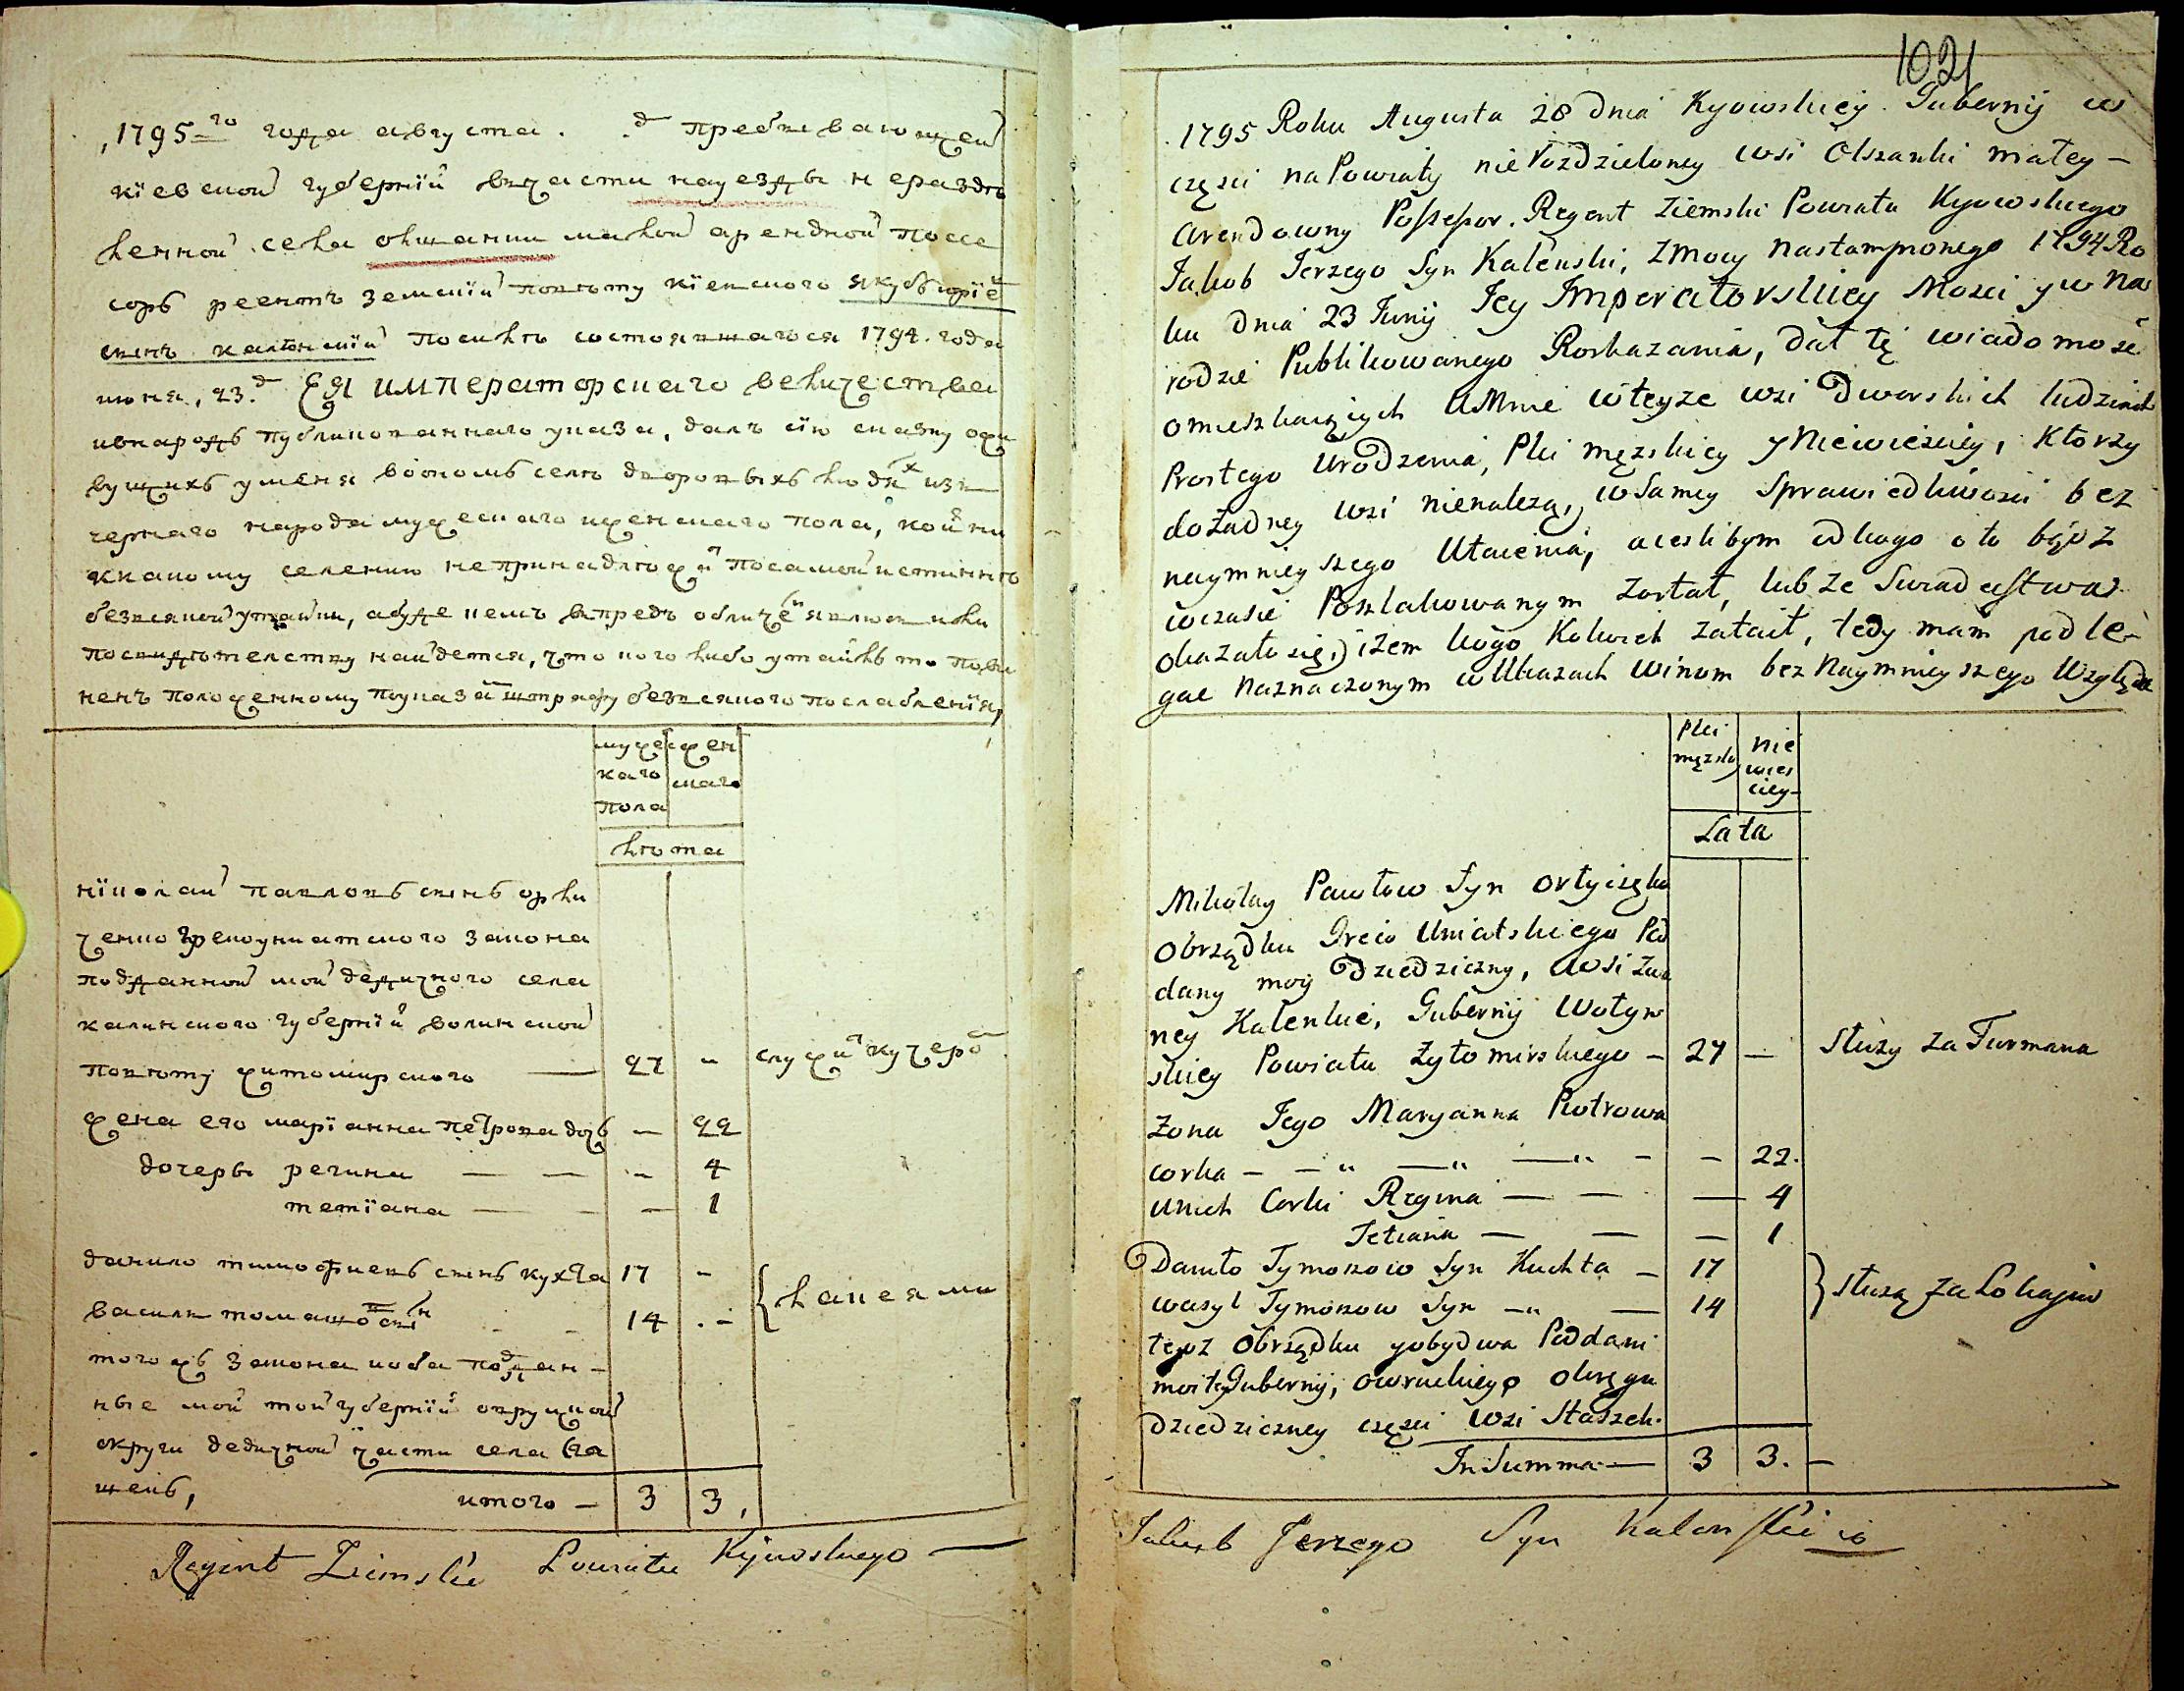 ,1795=го года августа . д пребывающей
кїевской губернїи вчасти науезды неразде
ленной села олшанки малой арендной поссе
соръ реентъ земскїй повѣту кїевского якубъ юрїе
сынъ каленскїй посилѣ состоявшагося 1794. года
июня, 23.д Ея императорскаго величества
ивнародъ публикованнаго указа, далъ сїю сказку о жи
вущихъ уменя воономъ селѣ дворовыхъ людях изъ
чернаго народа мужескаго иженскаго пола, кои ни
ккакому селению непринадлежат посамой истиннѣ
безвсякой утайки, абуде кемъ впредь обличен явлюсь или
посвидѣтелству найдется, что кого либо утаилъ то пови
ненъ положенному поуказам штрафу безвсякого послабленїя,
мужес
каго
пола
жен
скаго
лѣта
нїколай павловъ сынъ орли
ченко грекоуниатского закона
подданной мой дедичного села
калинского губернїи волинской
повѣту житомирского — 27 - служит кучером
жена его марїанна петрова дочь — 22
дочеры регина — — - 4
тетїана — - — 1
данило тимофиевъ сынъ кухта 17 -
василь томашов сын - - 14 . - { лакеями
тогожъ закона иоба поддан-
ные мои той губернїи овруцкой
округи дедичной части села ста
шекъ, итого — 3 3,
Regent Ziemski Powiatu Kijowskiego —
1021
1795 Roku Augusta 28 dnia Kyowskiey Gubernij w
częsci na Powiaty nierozdzieloney wsi Olszanki małey —
Arendowny Possessor. Regent Ziemski Powiatu Kyowskiego
Jakob Jerzego Syn Kaleński, Zmocy nastampionego 1794 Ro
ku dnia 23 Junij Jey Imperatorskiey Mosci y w Na
rodzie Publikowanego Roskazania, dał tę wiadomosć
o mieszkaiących UMnie wteyże wsi dworskich ludziach
Prostego Urodzenia, Płci męzskiey y Niewiesciey, Ktorzy
do Żadney wsi nienależą, wSamey Sprawiedliwosci bez
naymnieyszego Utaienia, aieslibym od kogo o to bądz
wczasie Poszlakowanym został, lub ze Swiadectwa
okazało się, iżem kogo Kolwiek zataił, tedy mam podle-
gac naznaczonym w Ukazach winom bez Naymnieyszego Względu
Płci
męzskiey
nie
wies
ciey-
Lata
Mikołay Pawłow Syn Orłyczęko
Obrządku Greco Uniatskiego Pod
dany moy Dziedziczny, Wsi Zwa
ney Kalenkie, Gubernij Wołyn
skiey Powiatu Żytomirskiego — 27 — Służy za Furmana
Żona Jego Maryanna Piotrowa
Corka — — " — " — " - — 22.
Unich Corki Regina — — — 4
Tetiana — — — 1
Daniło Tymoszow Syn Kuchta — 17
Wasyl Tymoszow Syn — " — 14 } Służą za Lokajow
tegoż Obrządku y obydwa Poddani
moi tey Gubernij, owruckiego okręgu
dziedziczney częsci Wsi Staszek.
In Summa — 3 3. —
Jakub Jerzego Syn Kalenski